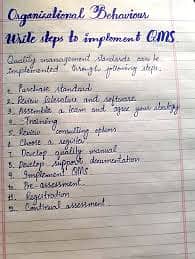 Organizational Behaviour
Write steps to implement QMS
Quality management standards can be
implemented through following steps.
1. Purchase standard
2. Review literature and software
3. Assemble a team and agree your strategy
4. Training
5. Review consulting options
6. Choose a registrar
7. Develop quality manual
8. Develop support documentation
9. Implement QMS
10. Pre-assessment
11. Registration
12. Continual assessment